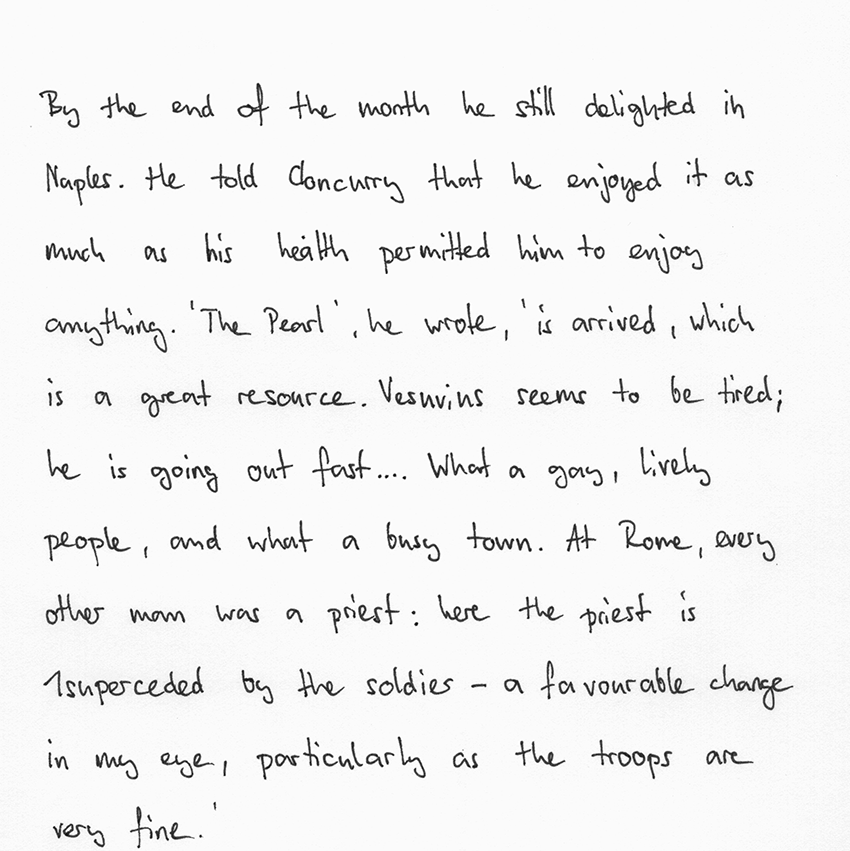 By the end of the month he still delighted in
Naples. He told Cloncurry that he enjoyed it as
much as his health permitted him to enjoy
anything. 'The Pearl', he wrote, 'is arrived, which
is a great resource. Vesuvius seems to be tired;
he is going out fast.... What a gay, lively
people, and what a busy town. At Rome, every
other man was a priest: here the priest is
1superceded by the soldies - a favourable change
in my eye, particularly as the troops are
very fine.'